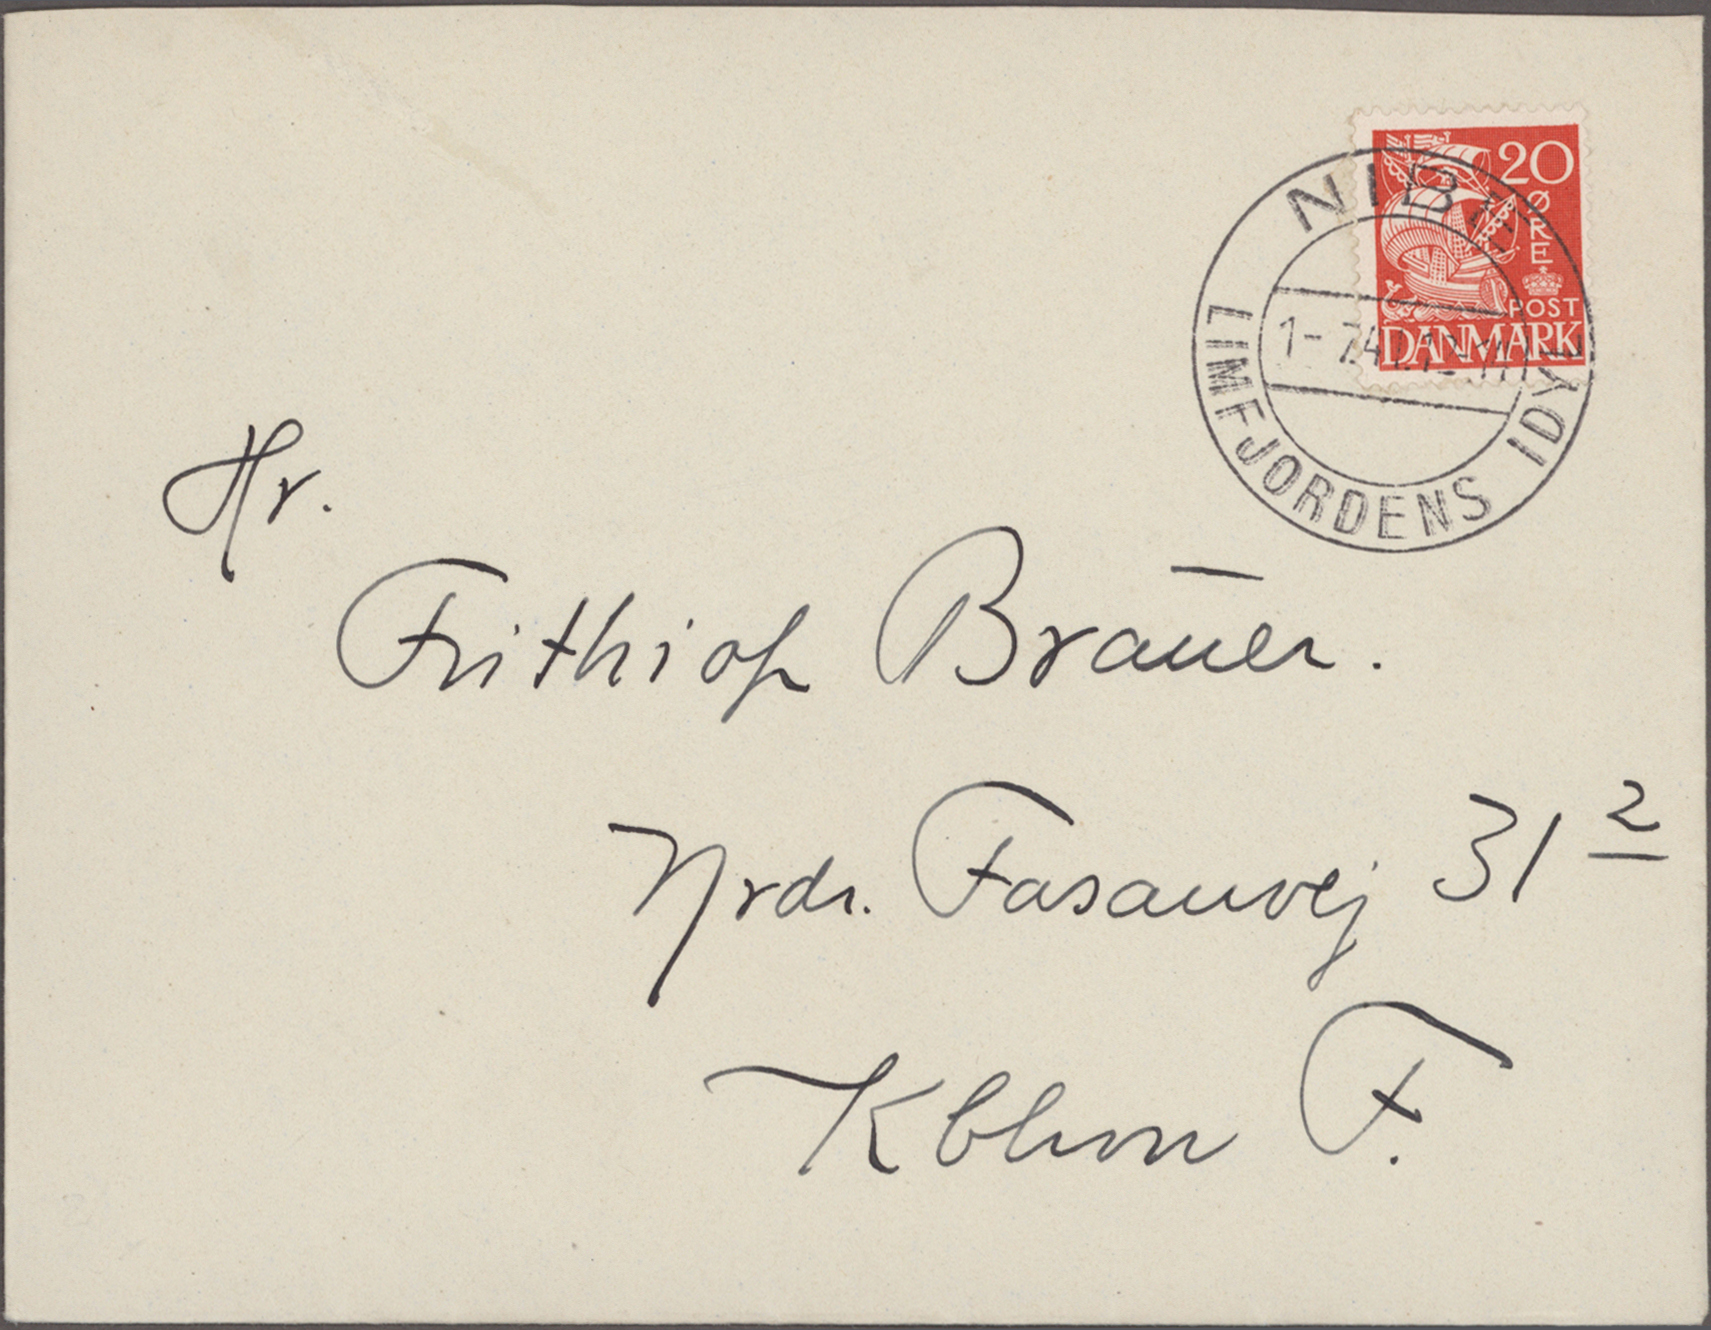 20
ØRE
POST
DANMARK
NIBE
LIMFJORDENS IDYL
1-7.41.12-
Hr.
Frithiof Brāuer.
Nrdr. Fasanvej 31 2
Kbhvn F.